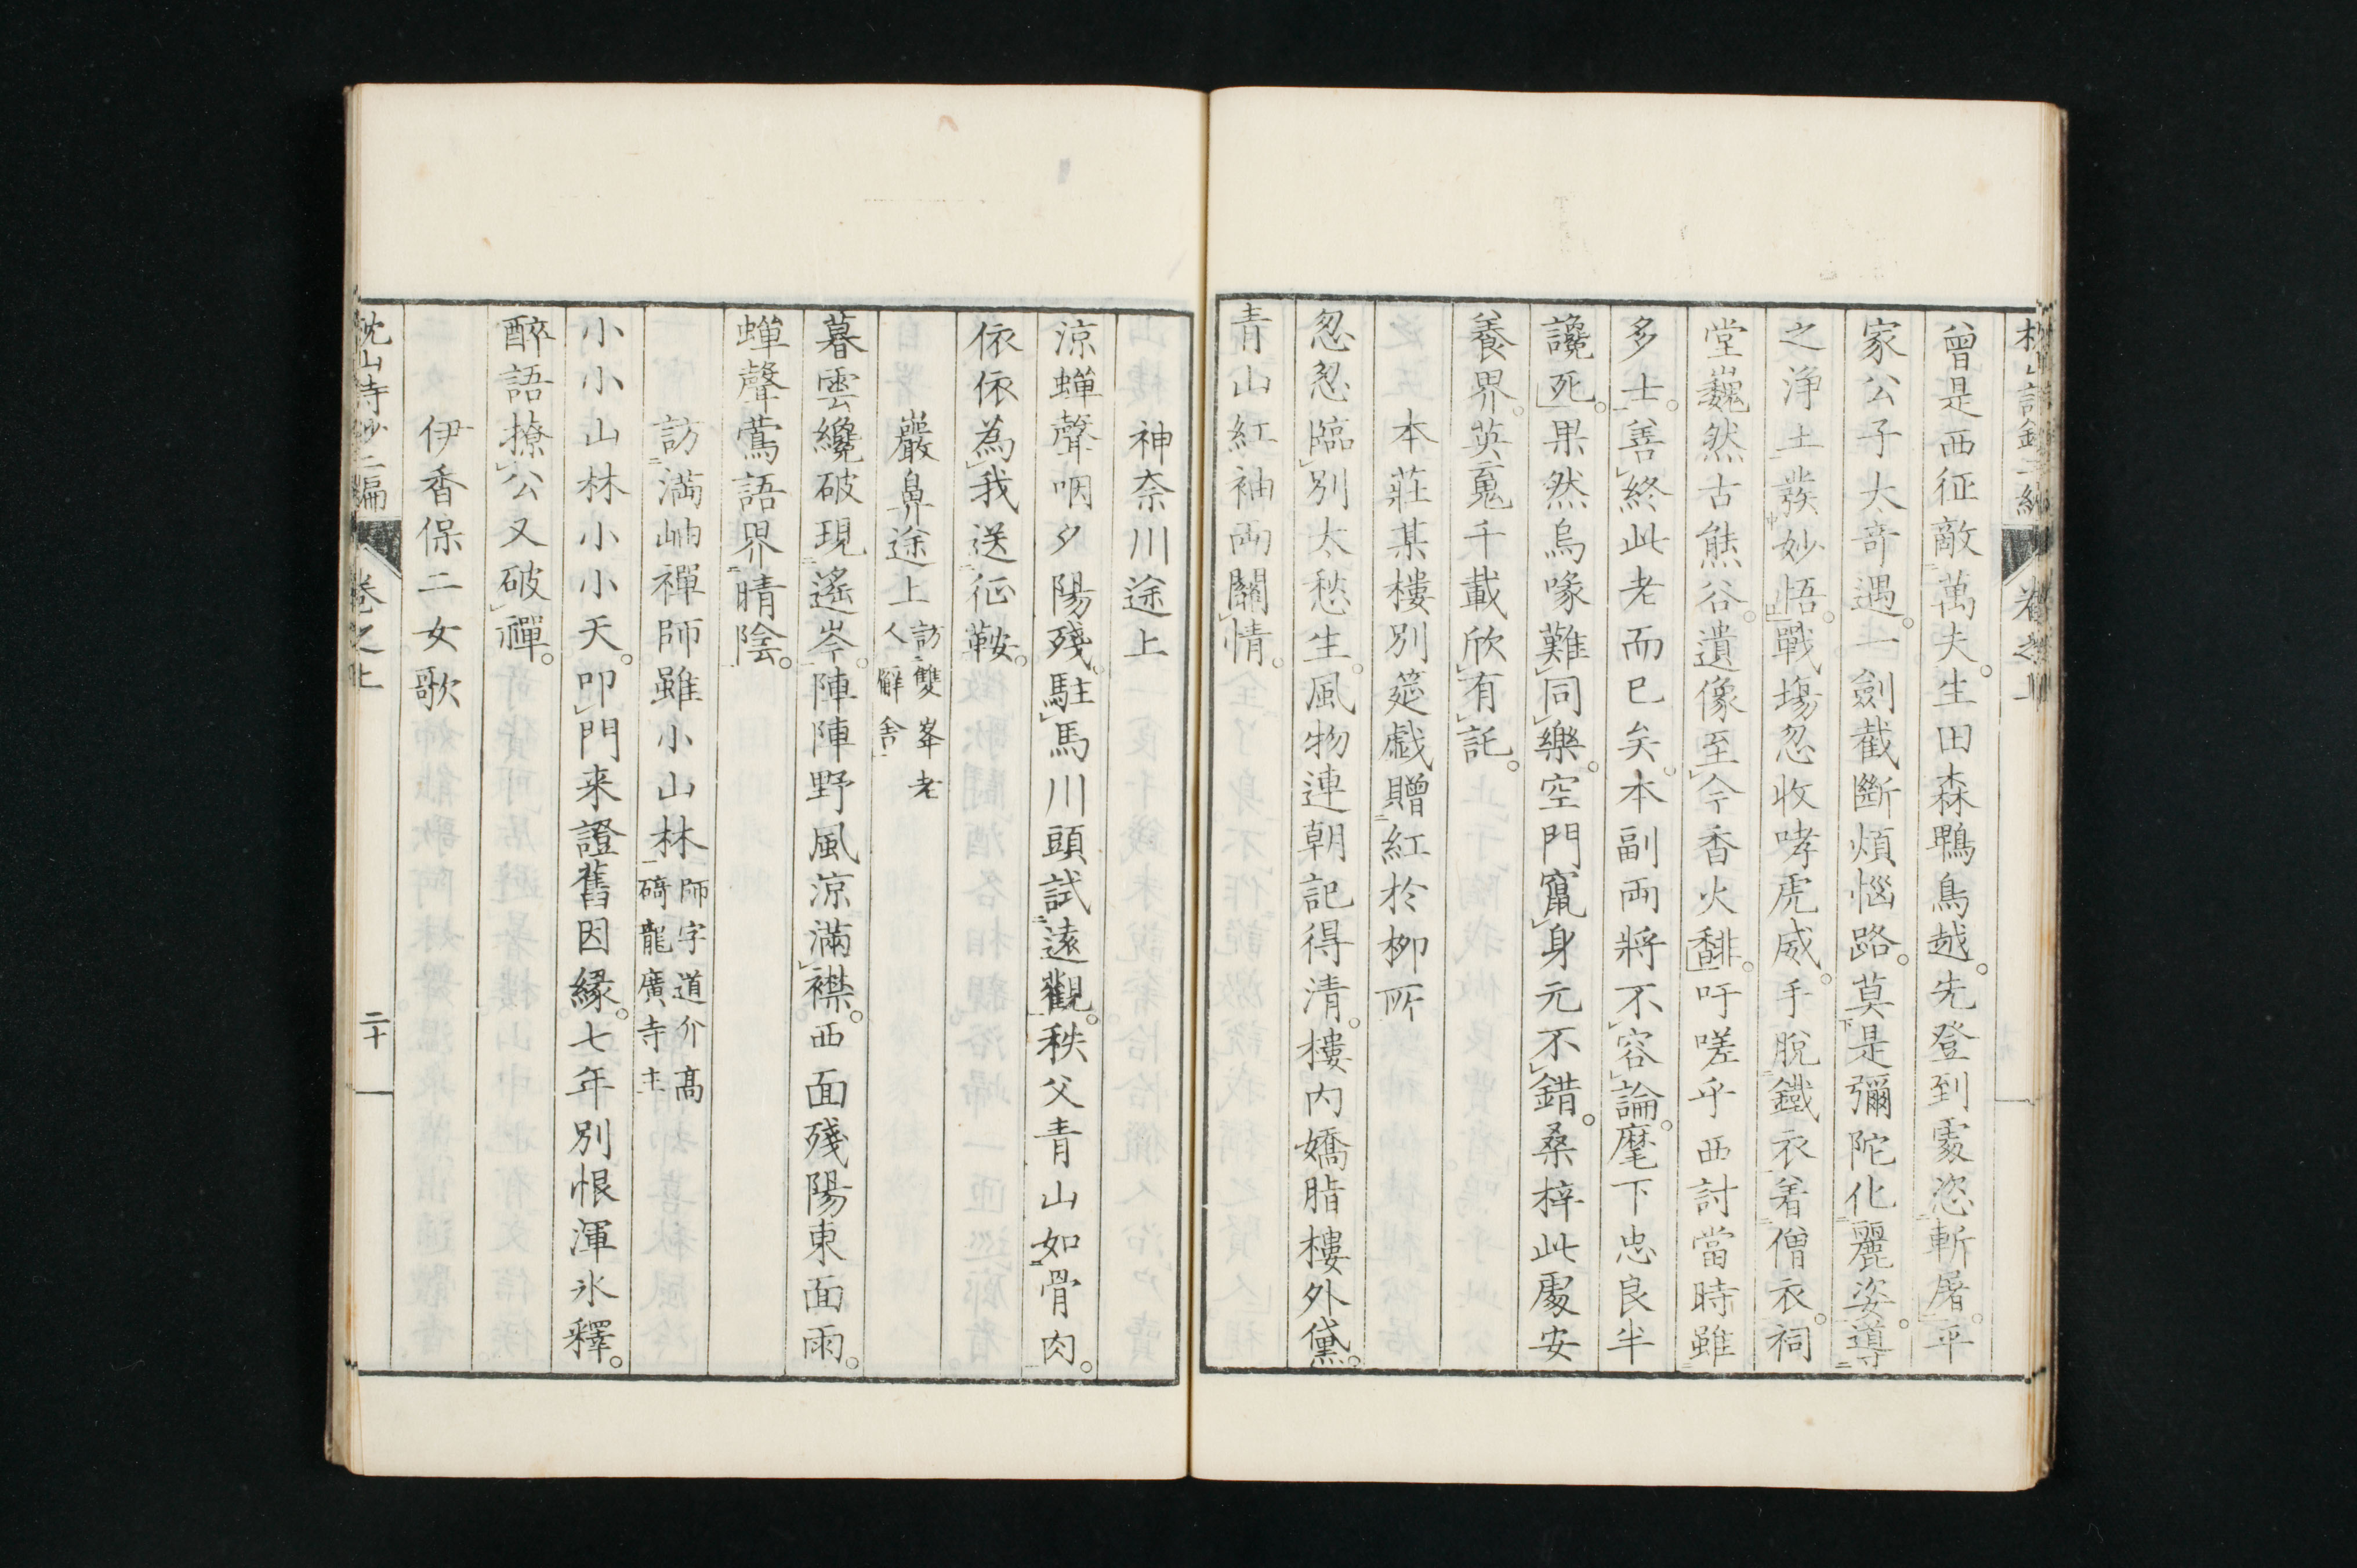 曾是西征敵萬夫。生田森鴨鳥越。先登到處恣斬屠。平
家公子太奇遇。一劍截斷煩惱路。莫是彌陀化麗姿。導
之浄土發妙悟。戰場忽收哮虎威。手脫鐵衣着僧衣。祠
堂巍然古熊谷。遺像至今香火馡。吁嗟乎西討當時雖
多士。善終此老而已矣。本副両將不容論。麾下忠良半
讒死。果然烏喙難同樂。空門竄身元不錯。桑梓此處安
養界。英魂千載欣有託。
本莊某樓別筵戯贈紅於柳所
忽忽臨別太愁生。風物連朝記得清。樓内嬌脂樓外黛。
青山紅袖両關情。
神奈川途上
涼蟬聲咽夕陽殘。駐馬川頭試遠觀。秩父青山如骨肉。
依依為我送征鞍。
巖鼻途上 訪雙峯老人廨舎
暮雲纔破現遙岑。陣陣野風涼滿襟。西面殘陽東面雨。
蟬聲鶯語界晴陰。
訪滿岫禪師雖小山林 師字道介高碕龍廣寺主
小小山林小小天。叩門来證舊因緣。七年別恨渾氷釋。
醉語撩公又破禪。
伊香保二女歌
枕山詩鈔二編 卷之上 二十